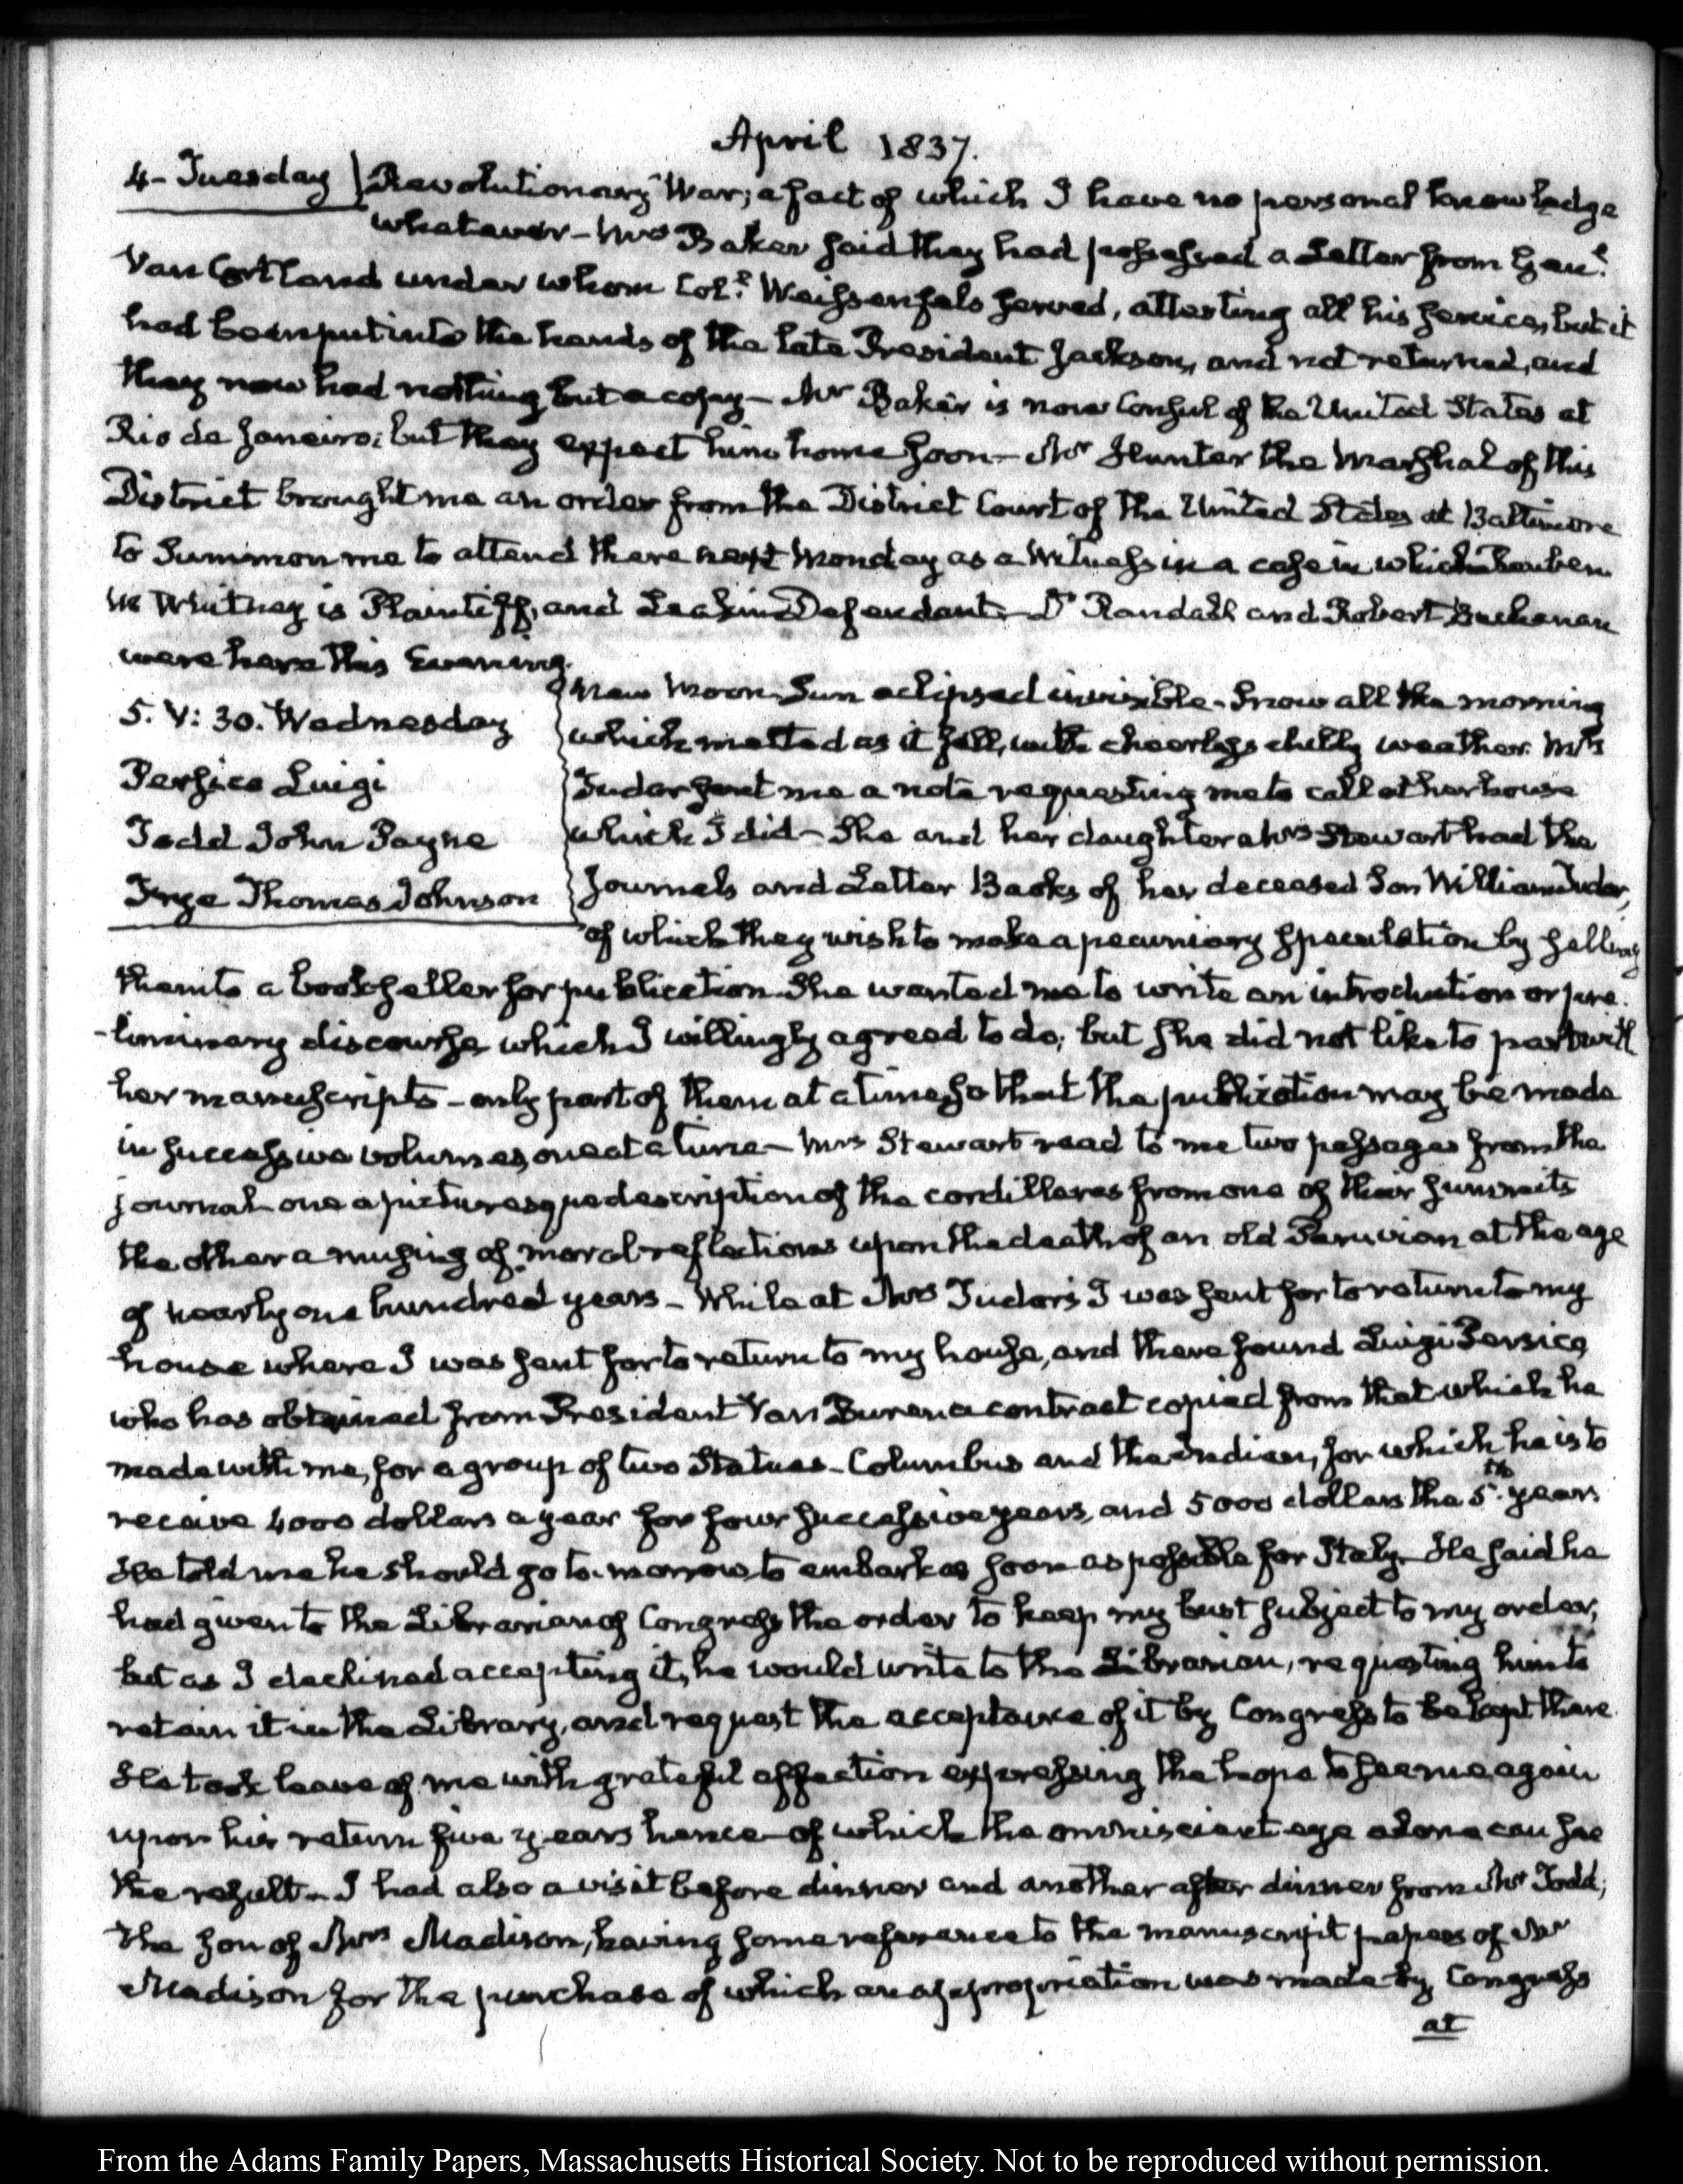 April 1837.
4 - Tuesday Revolutionary War; a fact of which I have no personal knowledge
whatever - Mrs Baker said they had possessed a Letter from Genl.
Van Cortland under whom Coll. Weissenfels served, attesting all his services, but it
had been put into the hands of the late President Jackson, and not returned, and
they now had nothing but a copy - Mr Baker is now Consul of the United States at
Rio de Janeiro; but they expect him home soon - Mr Hunter the Marshal of this
District brought me an order from the District Court of the United States at Baltimore
to Summon me to attend there next Monday as a Witness in a case in which Reuben
M Whitney is Plaintiff, and Defendant - Dr Randall and Robert Buchanan
were here this Evening.
5. V: 30. Wednesday
Persico Luigi
Todd John Payne
Inge Thomas Johnson
New Moon, Sun eclipsed invisible - Snow all the morning
which melted as it fell, with cheerless chilly weather. Mrs
Tudor sent me a note requesting me to call at her house
which I did - She and her daughter Mrs Stewart had the
Journals and Letter Books of her deceased Son William Tudor,
of which they wish to make a pecuniary speculation by selling
them to a bookseller for publication. She wanted me to write an introduction or pre
-liminary discourse which I willingly agreed to do; but she did not like to part with
her manuscripts - only part of them at a time, so that the publication may be made
in successive volumes, one at a time - Mrs Stewart read to me two passages from the
journal one a picturesque description of the cordilleras from one of their summits
the other a musing of moral reflections upon the death of an old Peruvian at the age
of nearly one hundred years - While at Mrs Tudor's I was sent for to return to my
house where I was sent for to return to my house, and there found Luigi Persico,
who has obtained from President Van Buren a contract copied from that which he
made with me, for a group of two Statues - Columbus and the Indian, for which he is to
receive 4000 dollars a year for four successive years, and 5000 dollars the 5th. year.
He told me he should go to-morrow, to embark as soon as possible for Italy. He said he
had given to the Librarian of Congress the order to keep my bust subject to my order;
but as I declined accepting it, he would write to the Librarian, requesting him to
retain it in the Library, and request the acceptance of it by Congress to be kept there.
He took leave of me with grateful affection expressing the hope to see me again
upon his return five years hence - of which the omniscient eye alone can see
the result - I had also a visit before dinner and another after dinner from Mr Todd;
the son of Mrs Madison, having some reference to the manuscript papers of Mr
Madison for the purchase of which an appropriation was made by Congress
at
From the Adams Family Papers, Massachusetts Historical Society. Not to be reproduced without permission.